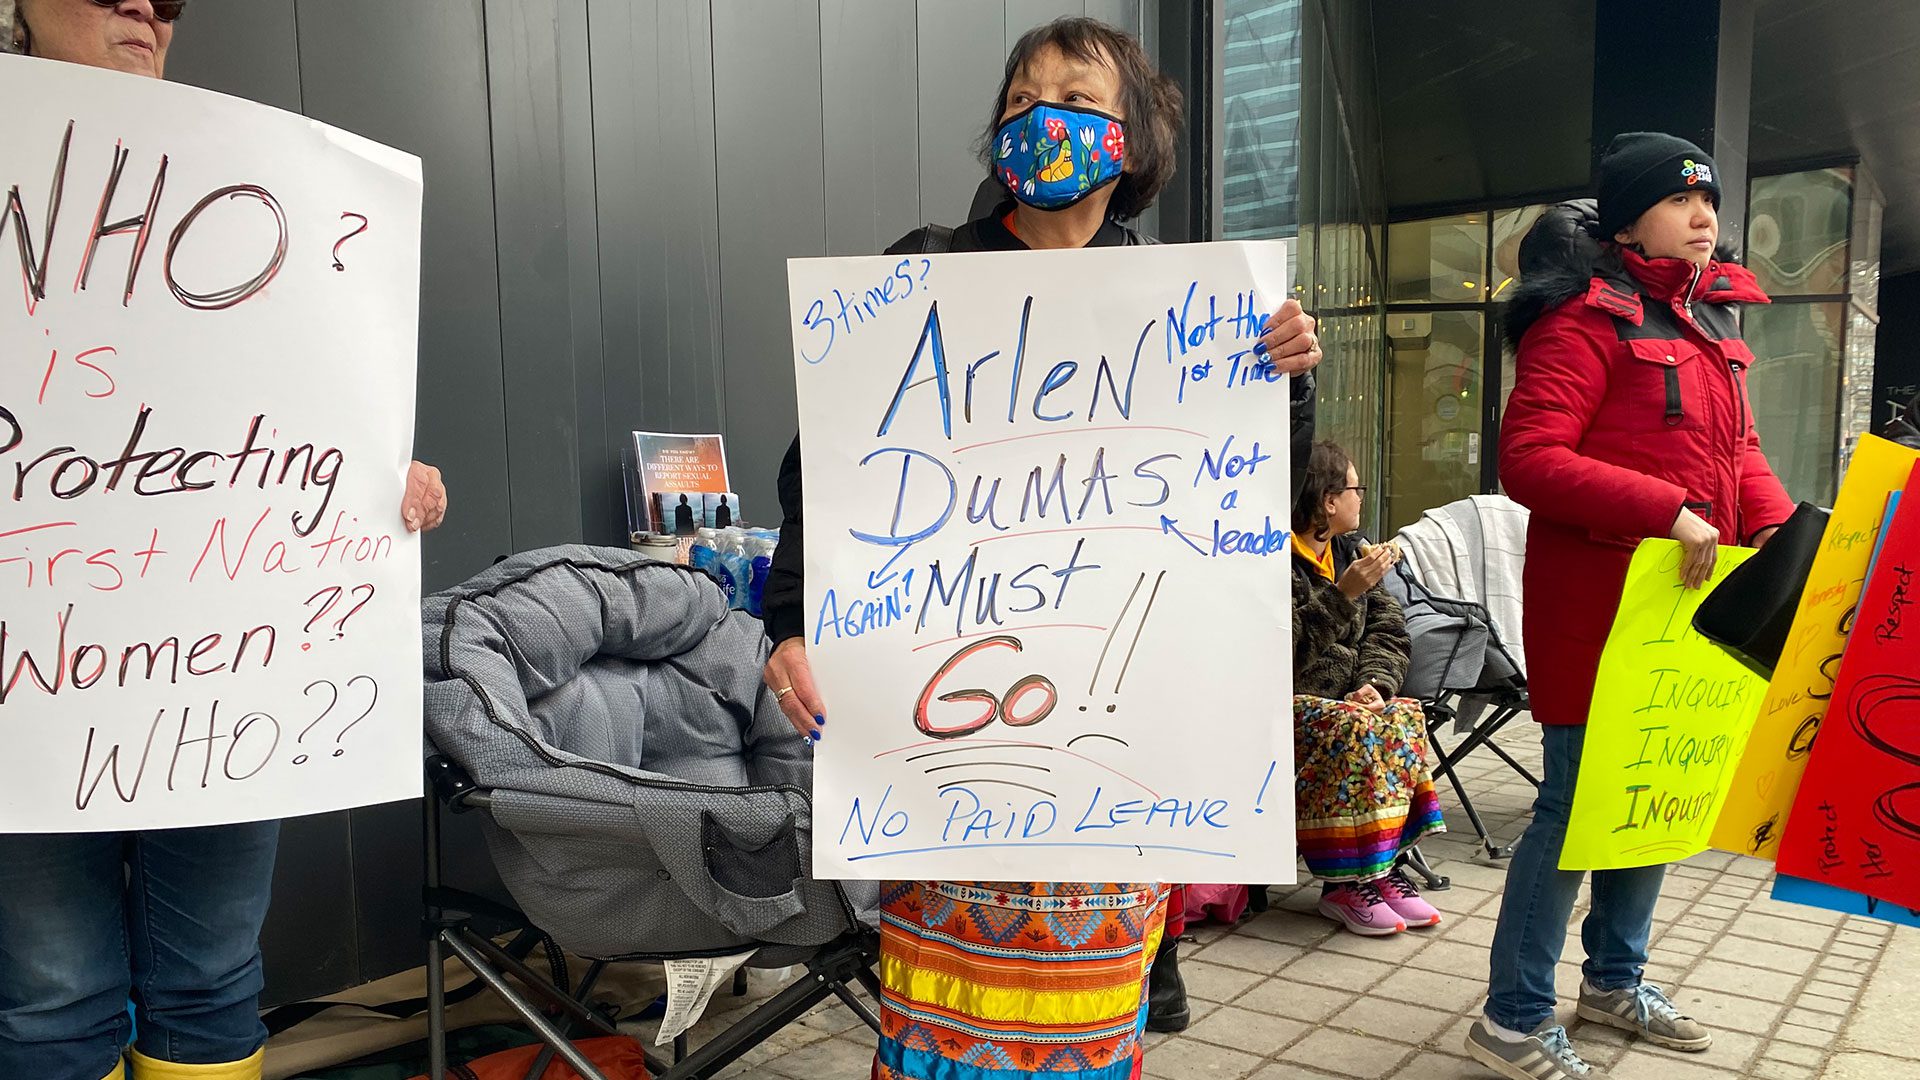 WHO?
is
Protecting
First Nation
Women??
WHO??
3 times?
Arlen
Not the
1st Time
Dumas
Not
a
leader
AGAIN!
Must
Go!!
No Paid Leave!
DID YOU KNOW?
THERE ARE
DIFFERENT WAYS TO
REPORT SEXUAL
ASSAULTS
INQUIRY
INQUIRY
Respect
Honesty
Love
Respect
Protect
Her
THE